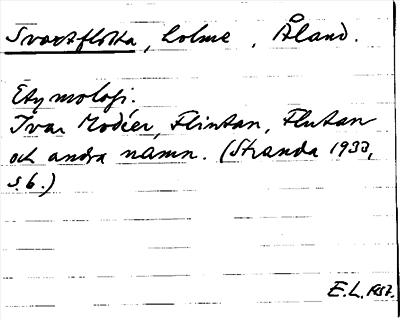 Svartflotta, Lolme, Åland.
Etymologi.
Ivar Modéer, Flintan, Flutan
och andra namn. (Stranda 1933,
s. 6.)
E.L. 1937.